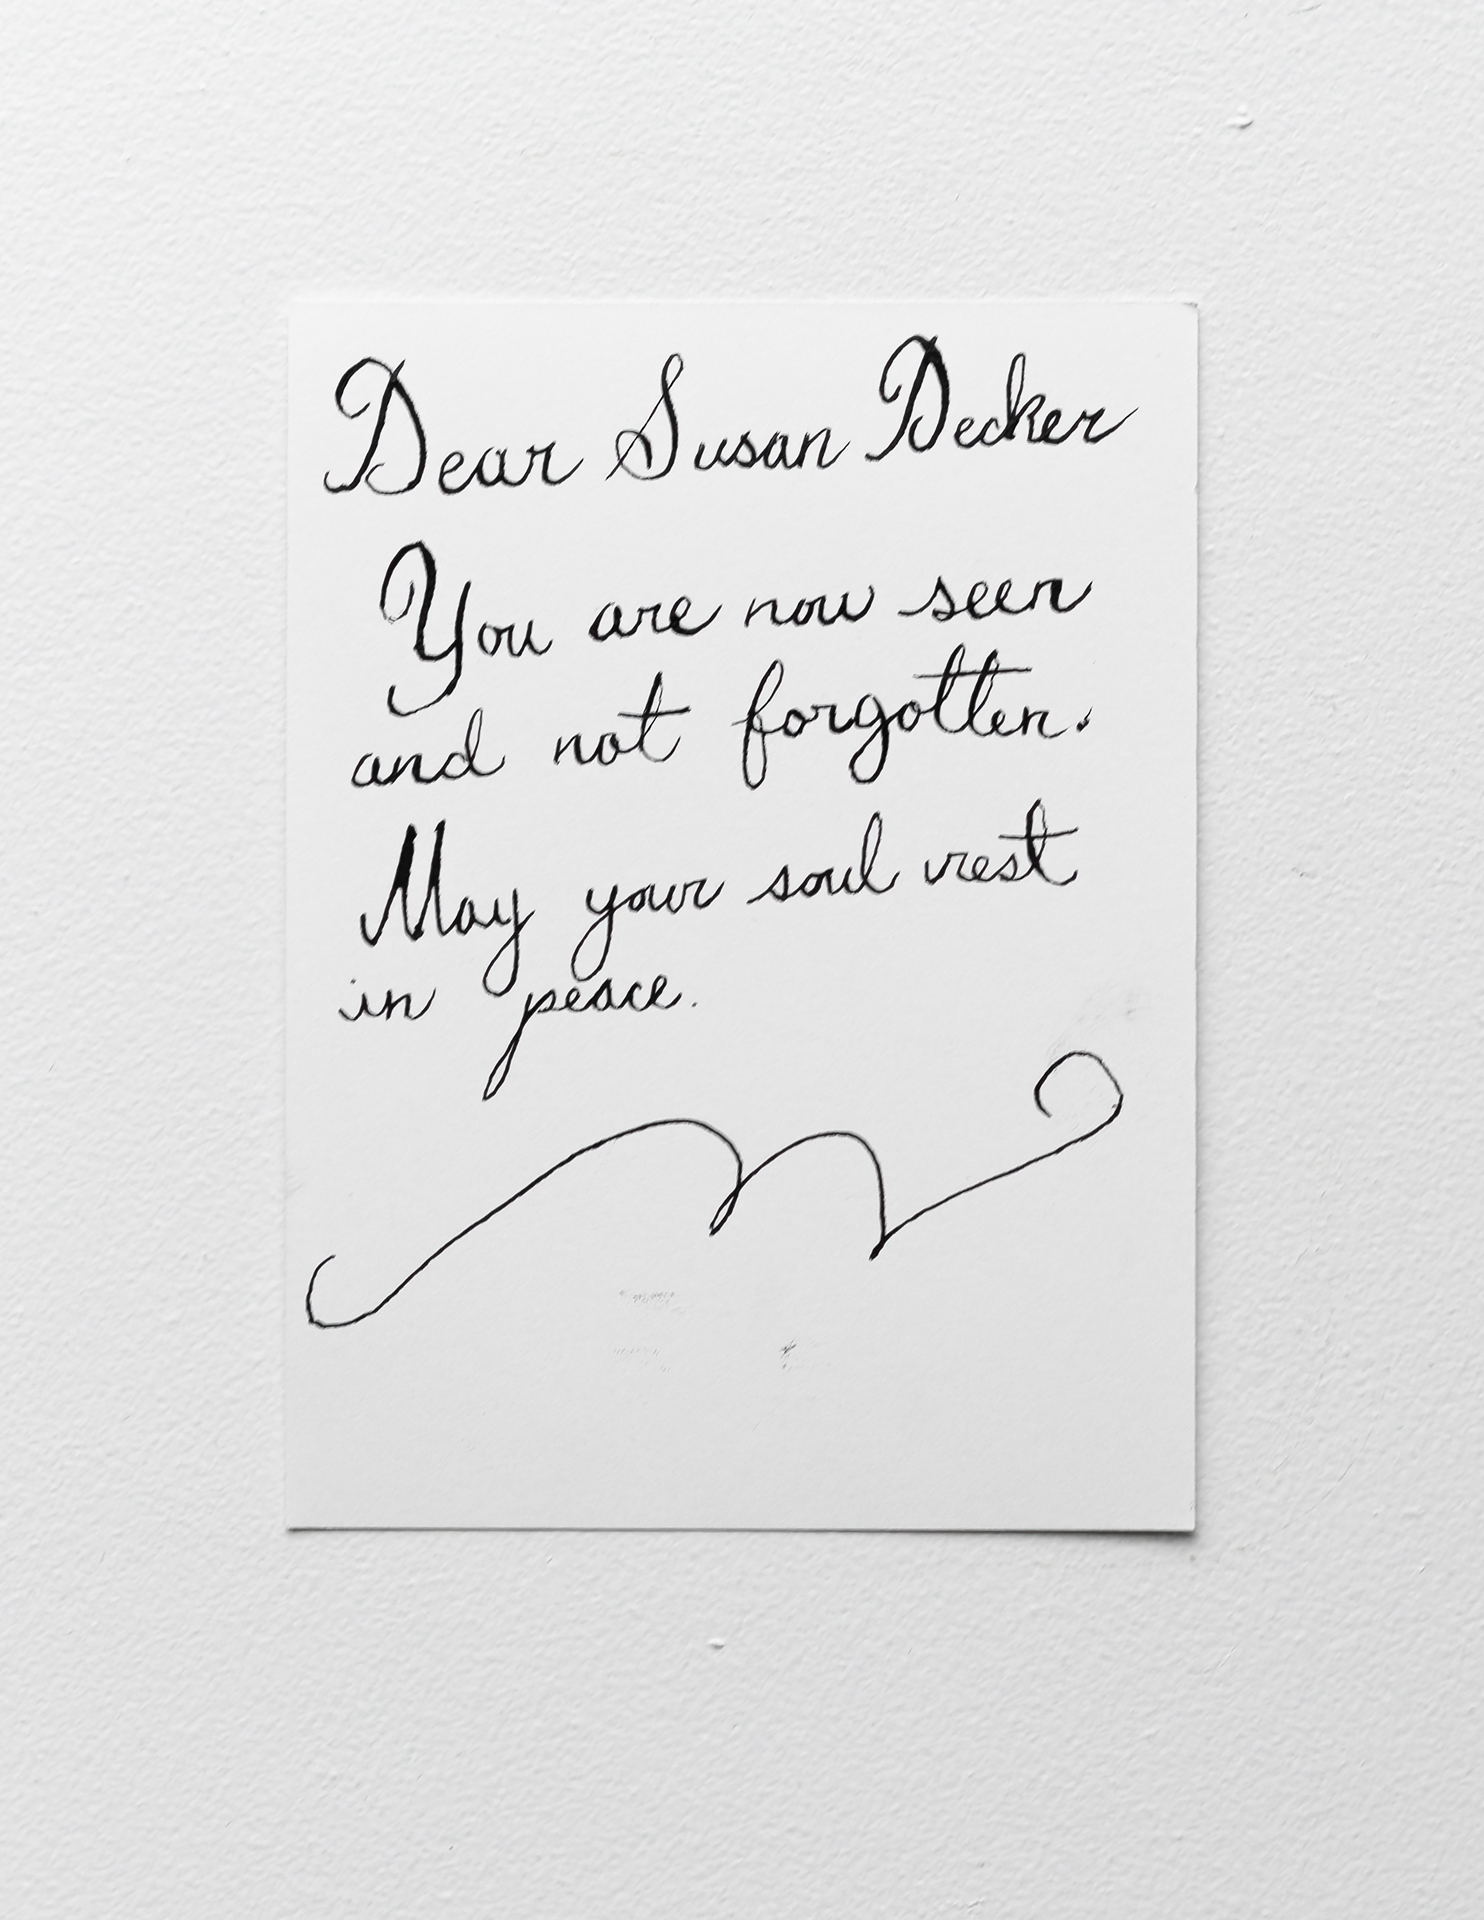 Dear Susan Decker
You are now seen
and not forgotten.
May your soul rest
in peace.